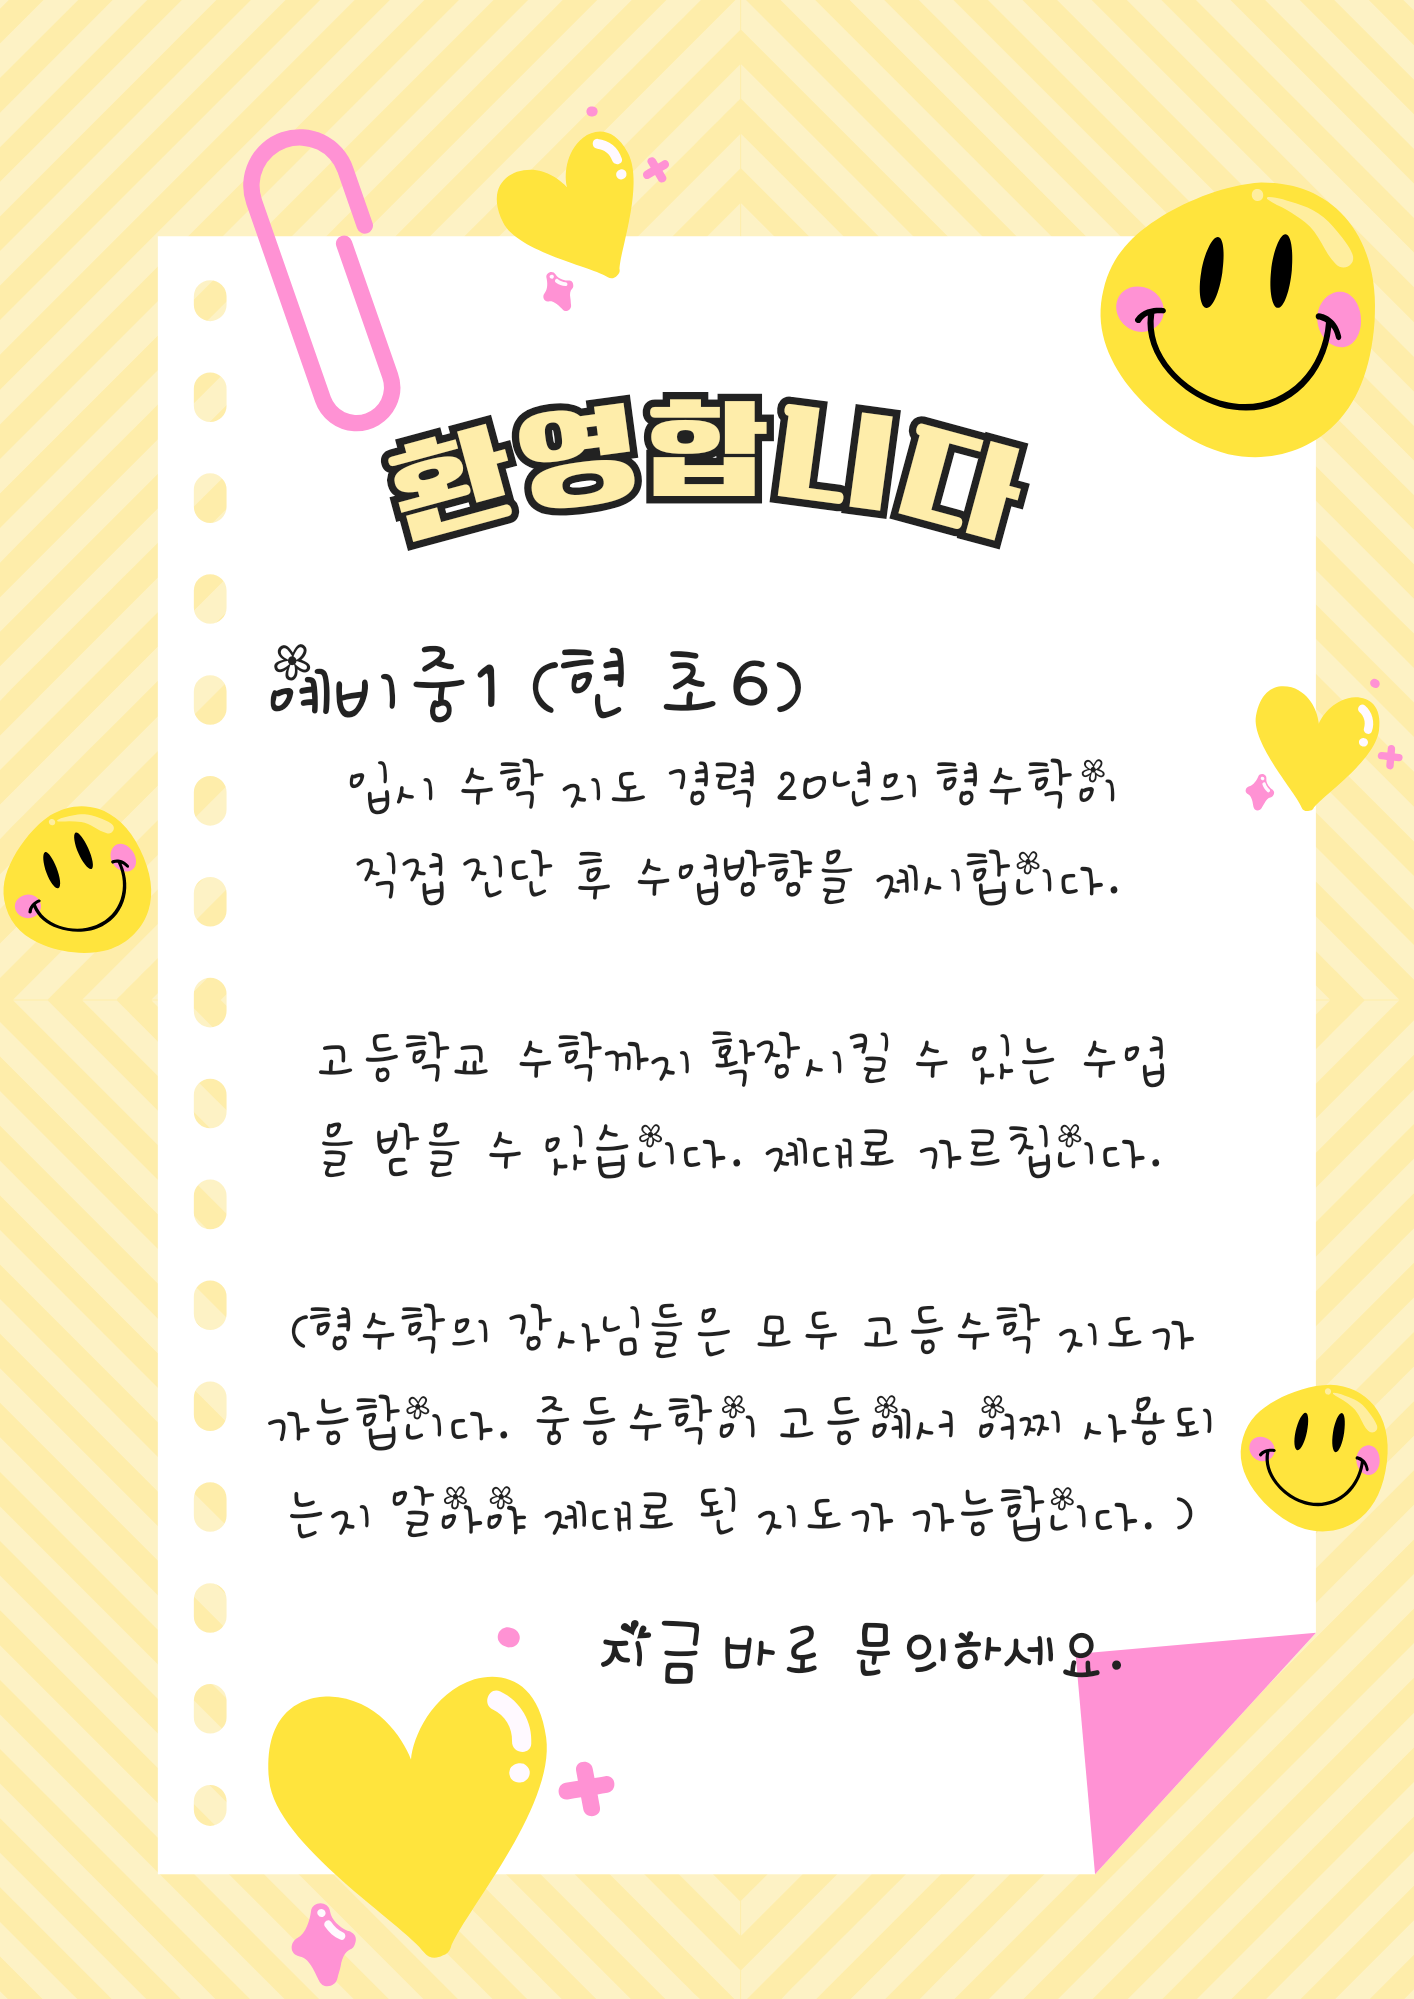 환영합니다
예비중1 (현 초6)
입시 수학 지도 경력 20년의 형수학이
직접 진단 후 수업방향을 제시합니다.
고등학교 수학까지 확장시킬 수 있는 수업
을 받을 수 있습니다. 제대로 가르칩니다.
(형수학의 강사님들은 모두 고등수학 지도가
가능합니다. 중등수학이 고등에서 어찌 사용되
는지 알아야 제대로 된 지도가 가능합니다. )
지금 바로 문의하세요.